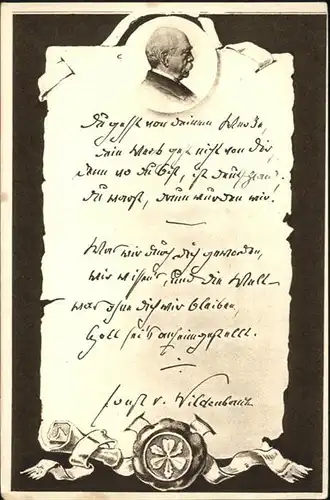 Du gehst von deinem Werke,
dein Werk geht nicht von dir,
denn wo du bist, ist Deutschland.
Du warst, drum wurden wir!
Was wir durch dich geworden,
wir wissen's, und die Welt –
was ohne dich wir bleiben,
Gott sei's anheimgestellt.
Ernst v. Wildenbruch